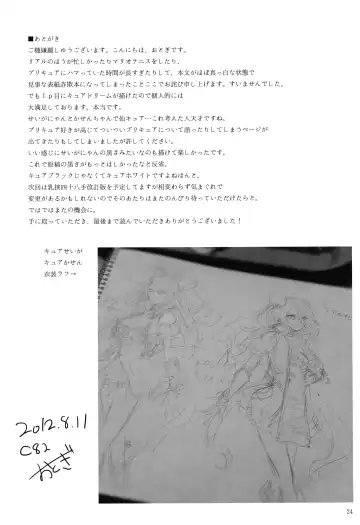 ■あとがき
ご機嫌麗しゅうございます。こんにちは、おとぎです。
リアルのほうが忙しかったりマリオテニスをしたり、
プリキュアにハマっていた時間が長すぎたりして、本文がほぼ真っ白な状態で
見事な表紙詐欺本になってしまったことここでお詫び申し上げます。すいませんでした。
でも１ｐ目にキュアドリームが描けたので個人的には
大満足しております。本当です。
せいがにゃんとかせんちゃんで仙キュア…これ考えた人天才ですね。
プリキュア好きが高じてついついプリキュアについて語ったりしてしまうページが
出てきたりもしましたが許してください。
いい感じにせいがにゃんの黒さみたいなのも描けて楽しかったです。
これで原稿の黒さがもっとはしかったなと反省。
キュアブラックじゃなくてキュアホワイトですよねほんと。
次回は乳挟四十八手改訂版を予定してますが相変わらず気まぐれで
変更があるかもしれないのでそのあたりはまたのんびり待っていただけたらと。
ではではまたの機会に。
手に取っていただき、最後まで読んでいただきありがとうございました！
キュアせいが
キュアかせん
衣装ラフ→
2012.8.11
C82
おとぎ
24